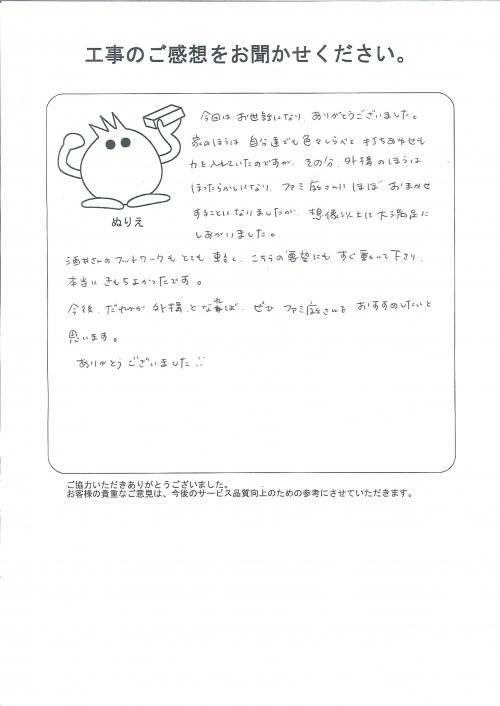 工事のご感想をお聞かせください。
今回は お世話になり、ありがとうございました。
家のほうは 自分達でも色々しらべて 打ち合わせも
力を入れていたのですが、その分、外構のほうは
ほったらかしになり、ファミ庭さんに ほぼ おまかせ
することになりましたが、想像以上に大満足に
しあがりました。
ぬりえ
酒井さんのフットワークも とても 軽く、こちらの要望にも すぐ動いて下さり、
本当に きもちよかったです。
今後、だれかが 外構、となれば、ぜひ ファミ庭さんを おすすめしたいと
思います。
ありがとうございました
ご協力いただきありがとうございました。
お客様の貴重なご意見は、今後のサービス品質向上のための参考にさせていただきます。